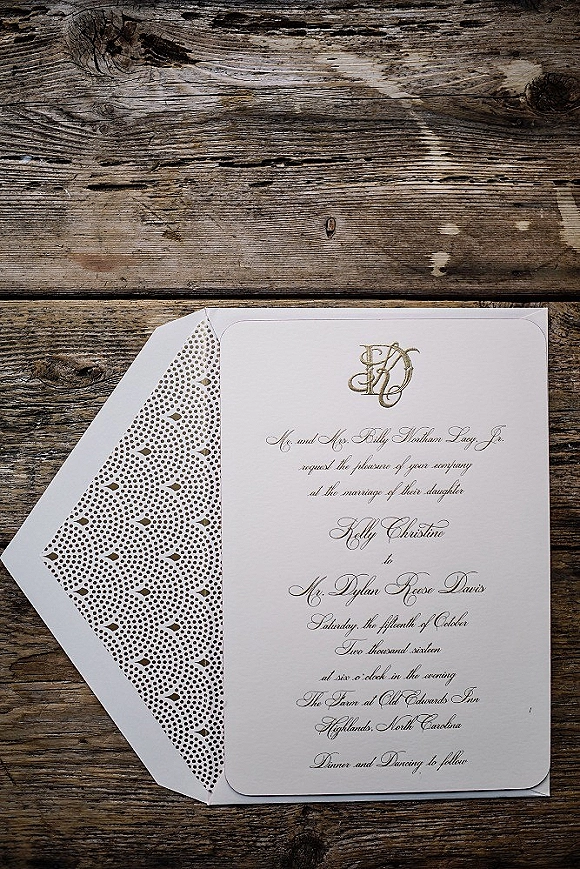 Mr. and Mrs. Billy Northam Lacy Jr.
request the pleasure of your company
at the marriage of their daughter
Kelly Christine
to
Mr. Dylan Reese Davis
Saturday, the fifteenth of October
Two thousand sixteen
at six o'clock in the evening
The Farm at Old Edwards Inn
Highlands, North Carolina
Dinner and Dancing to follow